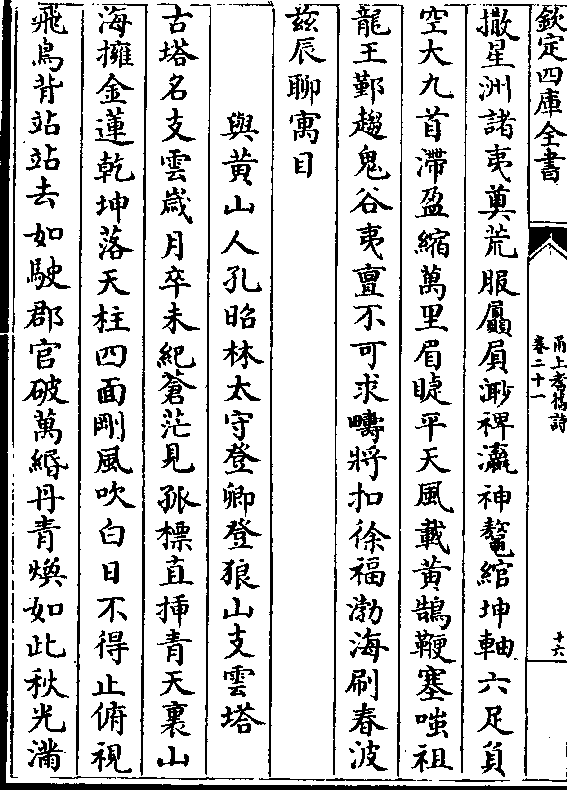 欽定四庫全書
甬上耆舊詩
卷二十一
十六
撒星洲諸夷奠荒服贔屓渺裨瀛神鼇綰坤軸六足負
空大九首滯盈縮萬里眉睫平天風載黃鵠鞭塞嗤祖
龍王鄞趨鬼谷夷亶不可求疇將扣徐福渤海刷春波
兹辰聊寓目
與黄山人孔昭林太守登卿登狼山支雲塔
古塔名支雲歲月卒未紀蒼茫見孤標直揷青天裏山
海擁金蓮乾坤落天柱四面剛風吹白日不得止俯視
飛鳥背站站去如駛郡官破萬緡丹青煥如此秋光滿